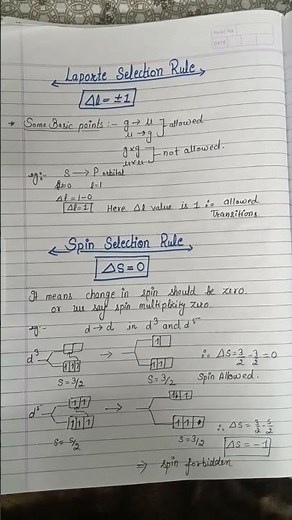 Laporte Selection Rule
Δl = ±1
→ Some Basic points :- g → u ] allowed
u → g
g×g ] not allowed.
u×u
eg:- S → P orbital
l=0 l=1
Δl = 1-0
Δl = 1 Here Δl value is 1 ∴ allowed
transitions
Spin Selection Rule
ΔS = 0
It means change in spin should be zero
or we say spin multiplicity zero.
eg:- d → d in d³ and d⁵
d³ 1 1 1 → 1 1 1 ∴ ΔS = 3/2 - 3/2 = 0
S = 3/2 S = 3/2 Spin Allowed.
d⁵ 1 1 1 1 1 →
S = 5/2 S = 3/2 ∴ ΔS = 3/2 - 5/2
ΔS = -1
⇒ spin forbidden